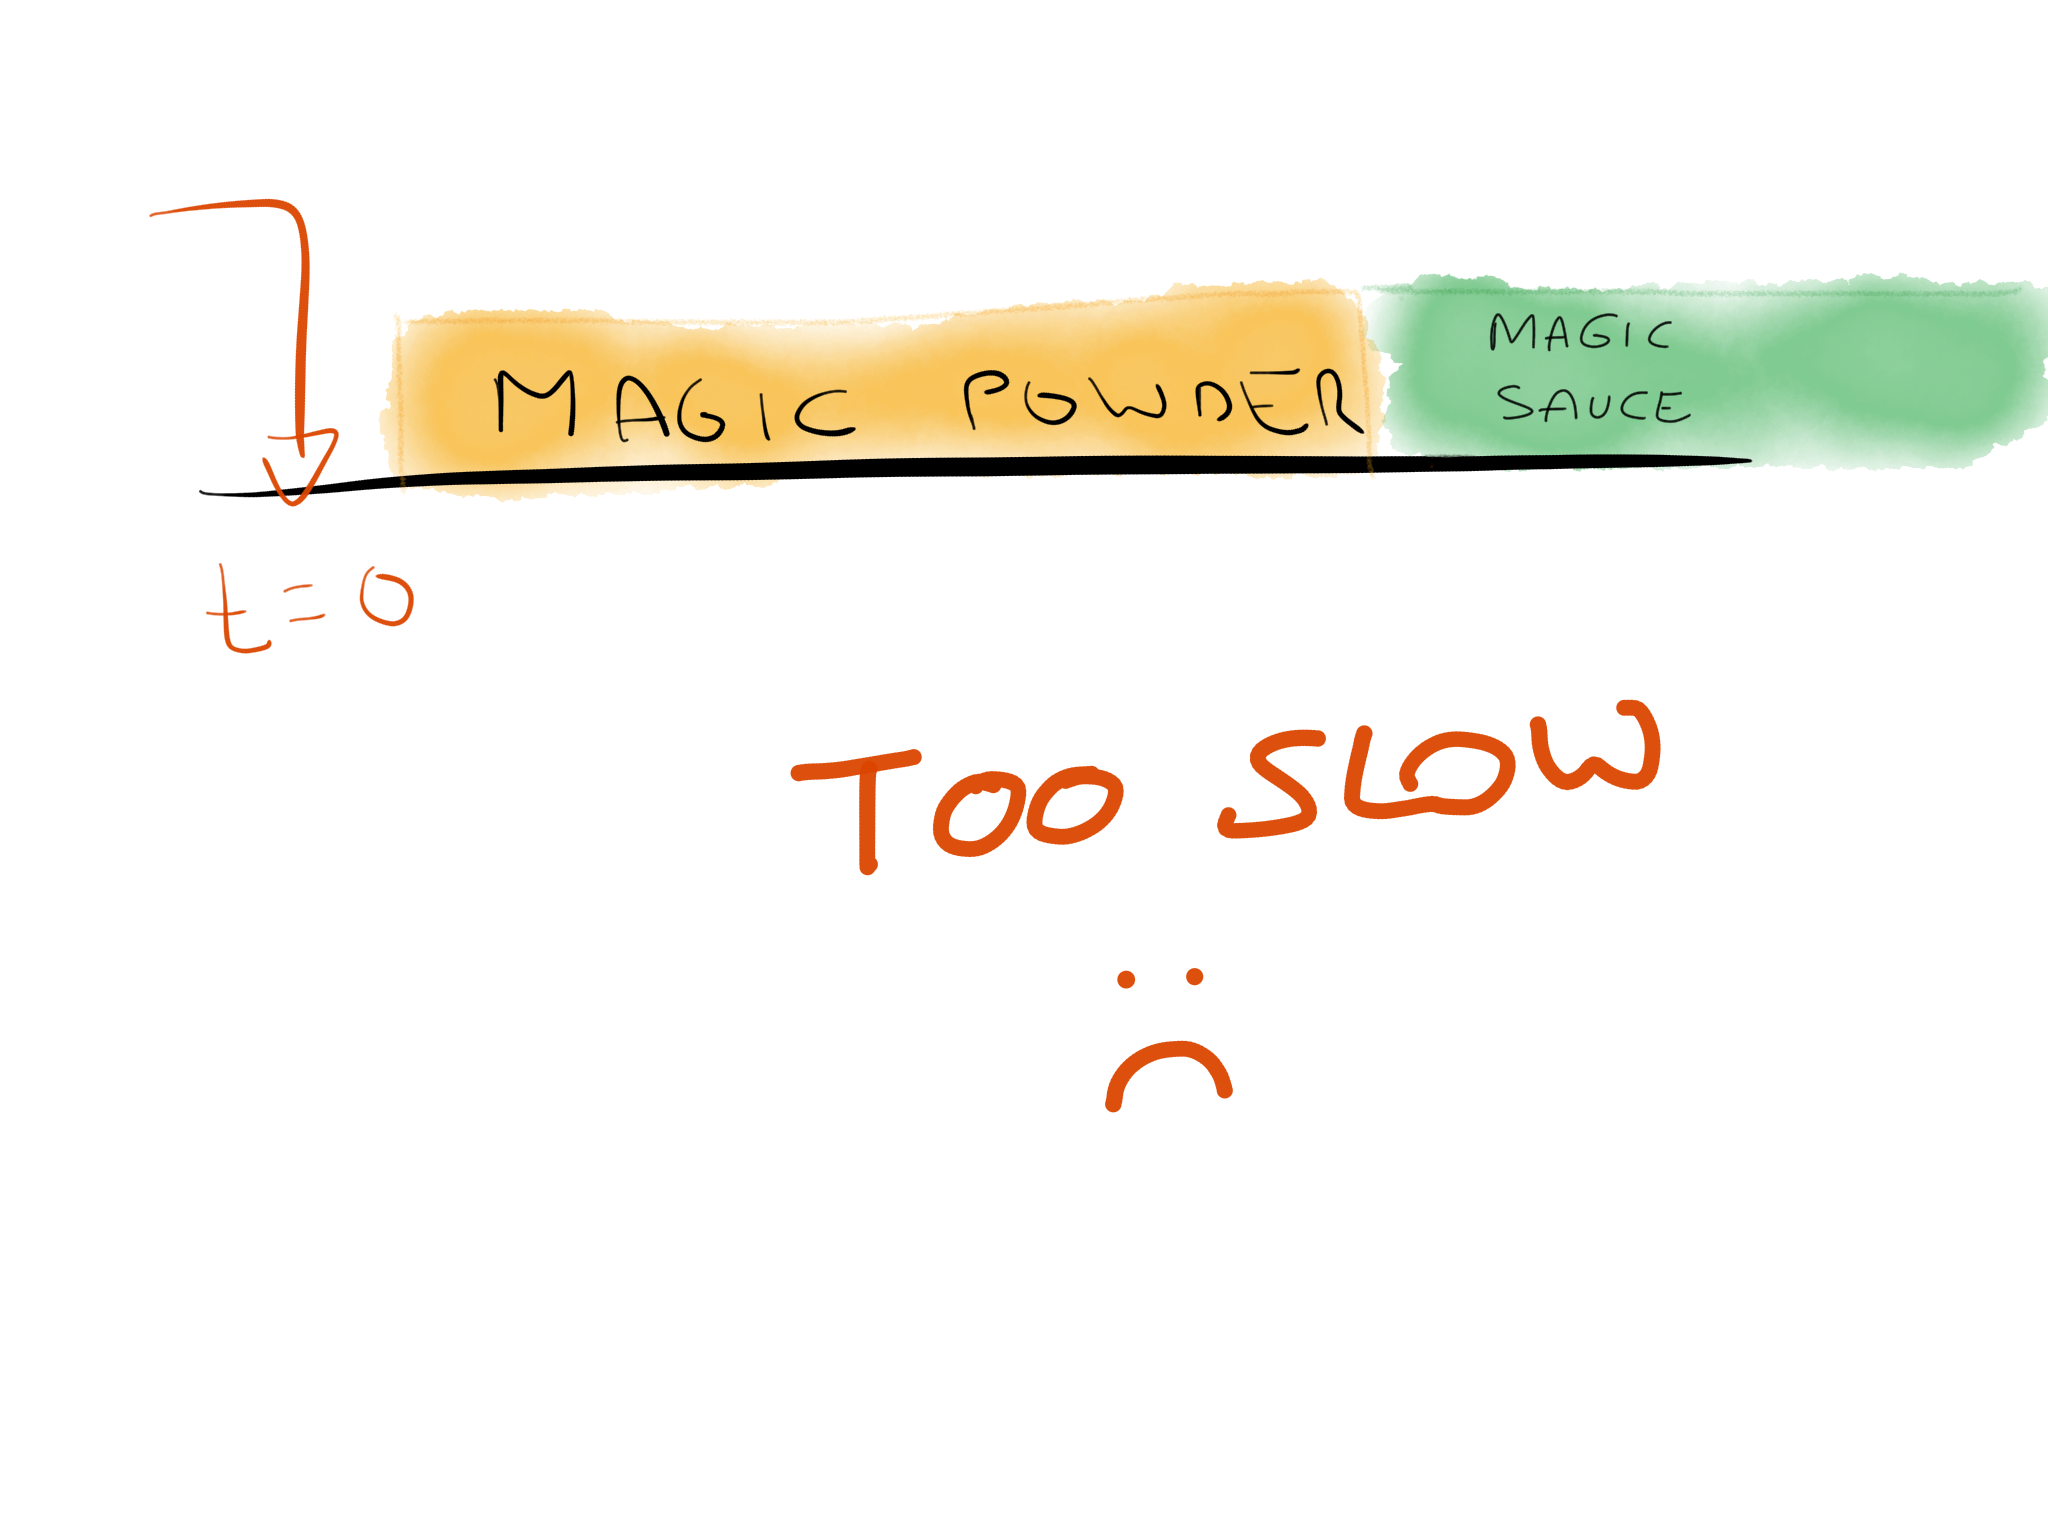 MAGIC POWDER
MAGIC
SAUCE
t=0
TOO SLOW